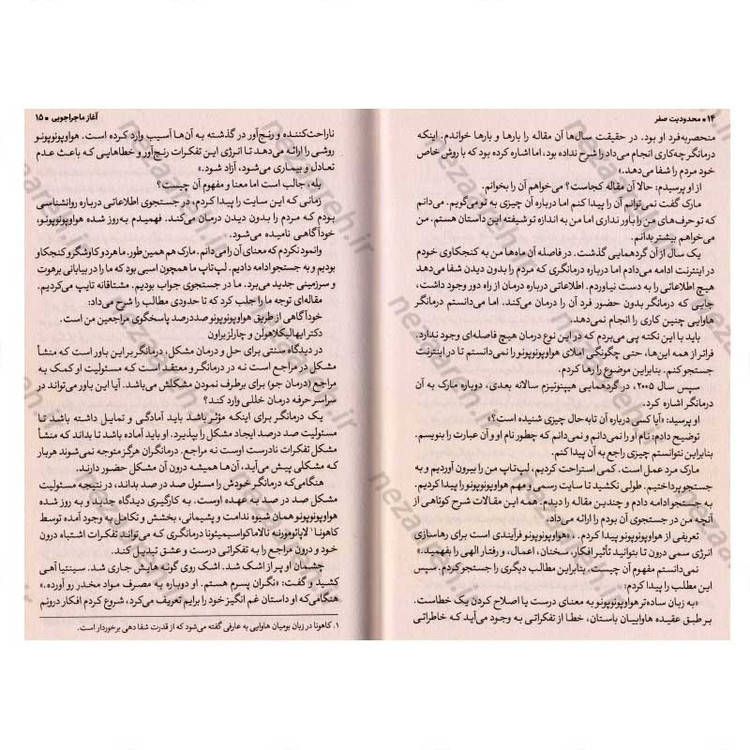 ۱۴ ▪ محدودیت صفر
منحصربه‌فرد او بود. در حقیقت سال‌ها آن مقاله را بارها و بارها خواندم. اینکه
درمانگر چه‌کاری انجام می‌داد را شرح نداده بود، اما اشاره کرده بود که با روش خاص
خود مردم را شفا می‌دهد.»
از او پرسیدم: حالا آن مقاله کجاست؟ می‌خواهم آن را بخوانم.
مارک گفت نمی‌توانم آن را پیدا کنم اما درباره آن چیزی به تو می‌گویم. می‌دانم
که تو حرف‌های من را باور نداری اما من به اندازه تو شیفته این داستان هستم. من
می‌خواهم بیشتر بدانم.
یک سال از آن گردهمایی گذشت. در فاصله آن ماه‌ها من به کنجکاوی خودم
در اینترنت ادامه می‌دادم اما درباره درمانگری که مردم را بدون دیدن شفا می‌دهد
هیچ اطلاعاتی را به دست نیاوردم. اطلاعاتی درباره درمان از راه دور وجود داشت،
جایی که درمانگر بدون حضور فرد آن را درمان می‌کند. اما می‌دانستم درمانگر
هاوایی چنین کاری را انجام نمی‌دهد.
باید با این نکته پی می‌بردم که در این نوع درمان هیچ فاصله‌ای وجود ندارد.
فراتر از همه این‌ها، حتی چگونگی املای هواوپونوپونو را نمی‌دانستم تا در اینترنت
جستجو کنم. بنابراین موضوع را رها کردم.
سپس سال ۲۰۰۵، در گردهمایی هیپنوتیزم سالانه بعدی، دوباره مارک به آن
درمانگر اشاره کرد.
او پرسید: «آیا کسی درباره آن تابه‌حال چیزی شنیده است؟»
توضیح دادم: نام او را نمی‌دانم و نمی‌دانم که چطور نام او و آن عبارت را بنویسم.
بنابراین نتوانستم چیزی راجع به آن پیدا کنم.
مارک مرد عمل است. کمی استراحت کردیم، لپ‌تاپ من را بیرون آوردیم و به
جستجو پرداختیم. طولی نکشید تا سایت رسمی و مهم هواوپونوپونو را پیدا کردم.
به جستجو ادامه دادم و چندین مقاله را دیدم. همه این مقالات شرح کوتاهی از
آنچه من در جستجوی آن بودم را ارائه می‌داد.
تعریفی از هواوپونوپونو پیدا کردم. «هواوپونوپونو فرآیندی است برای رهاسازی
انرژی سمی درون تا بتوانید تأثیر افکار، سخنان، اعمال، و رفتار الهی را بفهمید.»
نمی‌دانستم مفهوم آن چیست. بنابراین مطالب دیگری را جستجو کردم. سپس
این مطلب را پیدا کردم:
«به زبان ساده‌تر هواوپونوپونو به معنای درست یا اصلاح کردن یک خطاست.
بر طبق عقیده هاواییان باستان، خطا از تفکراتی به وجود می‌آید که خاطراتی
آغاز ماجراجویی ▪ ۱۵
ناراحت‌کننده و رنج‌آور در گذشته به آن‌ها آسیب وارد کرده است. هواوپونوپونو
روشی را ارائه می‌دهد تا انرژی این تفکرات رنج‌آور و خطاهایی که باعث عدم
تعادل و بیماری می‌شود، آزاد شود.»
بله، جالب است اما معنا و مفهوم آن چیست؟
زمانی که این سایت را پیدا کردم، در جستجوی اطلاعاتی درباره روانشناسی
بودم که مردم را بدون دیدن درمان می‌کند. فهمیدم به‌روز شده هواوپونوپونو،
خودآگاهی نامیده می‌شود.
وانمود نکردم که معنای آن را می‌دانم. مارک هم همین‌طور. ما هردو کاوشگر و کنجکاو
بودیم و به جستجو ادامه دادیم. لپ‌تاپ ما همچون اسبی بود که ما را در بیابانی برهوت
و سرزمینی جدید می‌برد. ما در جستجوی جواب بودیم. مشتاقانه تایپ می‌کردیم.
مقاله‌ای توجه ما را جلب کرد که تا حدودی مطالب را شرح می‌داد:
خودآگاهی از طریق هواوپونوپونو صددرصد پاسخگوی مراجعین من است.
دکتر ایهالیکلا هولن و چارلز براون
در دیدگاه سنتی برای حل و درمان مشکل، درمانگر بر این باور است که منشأ
مشکل در مراجع است نه در درمانگر و معتقد است که مسئولیت او کمک به
مراجع (درمان جو) برای برطرف نمودن مشکلش می‌باشد. آیا این باور می‌تواند در
سراسر حرفه درمان خللی وارد کند؟
یک درمانگر برای اینکه مؤثر باشد باید آمادگی و تمایل داشته باشد تا
مسئولیت صد درصد ایجاد مشکل را بپذیرد. او باید آماده باشد تا بداند که منشأ
مشکل تفکرات نادرست اوست نه مراجع. درمانگران هرگز متوجه نمی‌شوند هربار
که مشکلی پیش می‌آید، آن‌ها همیشه درون آن مشکل حضور دارند.
هنگامی‌که درمانگر خودش را مسئول صد در صد بداند، در نتیجه مسئولیت
مشکل صد در صد به عهده اوست. به کارگیری دیدگاه جدید و به روز شده
هواوپونوپونو همان شیوه ندامت و پشیمانی، بخشش و تکامل به وجود آمده توسط
کاهونا۱ لاپائو مورنه نالاماکواسیمیئونا درمانگری که می‌تواند تفکرات اشتباه درون
خود و درون مراجع را به تفکراتی درست و عشق تبدیل کند.
چشمان او پر از اشک شد. اشک روی گونه هایش جاری شد. سینتیا آهی
کشید و گفت: «نگران پسرم هستم. او دوباره به مصرف مواد مخدر رو آورده.»
هنگامی‌که او داستان غم انگیز خود را برایم تعریف می‌کرد، شروع کردم افکار درونم
۱. کاهونا در زبان بومیان هاوایی به عارفی گفته می‌شود که از قدرت شفا دهی برخوردار است.
nezaareh.ir